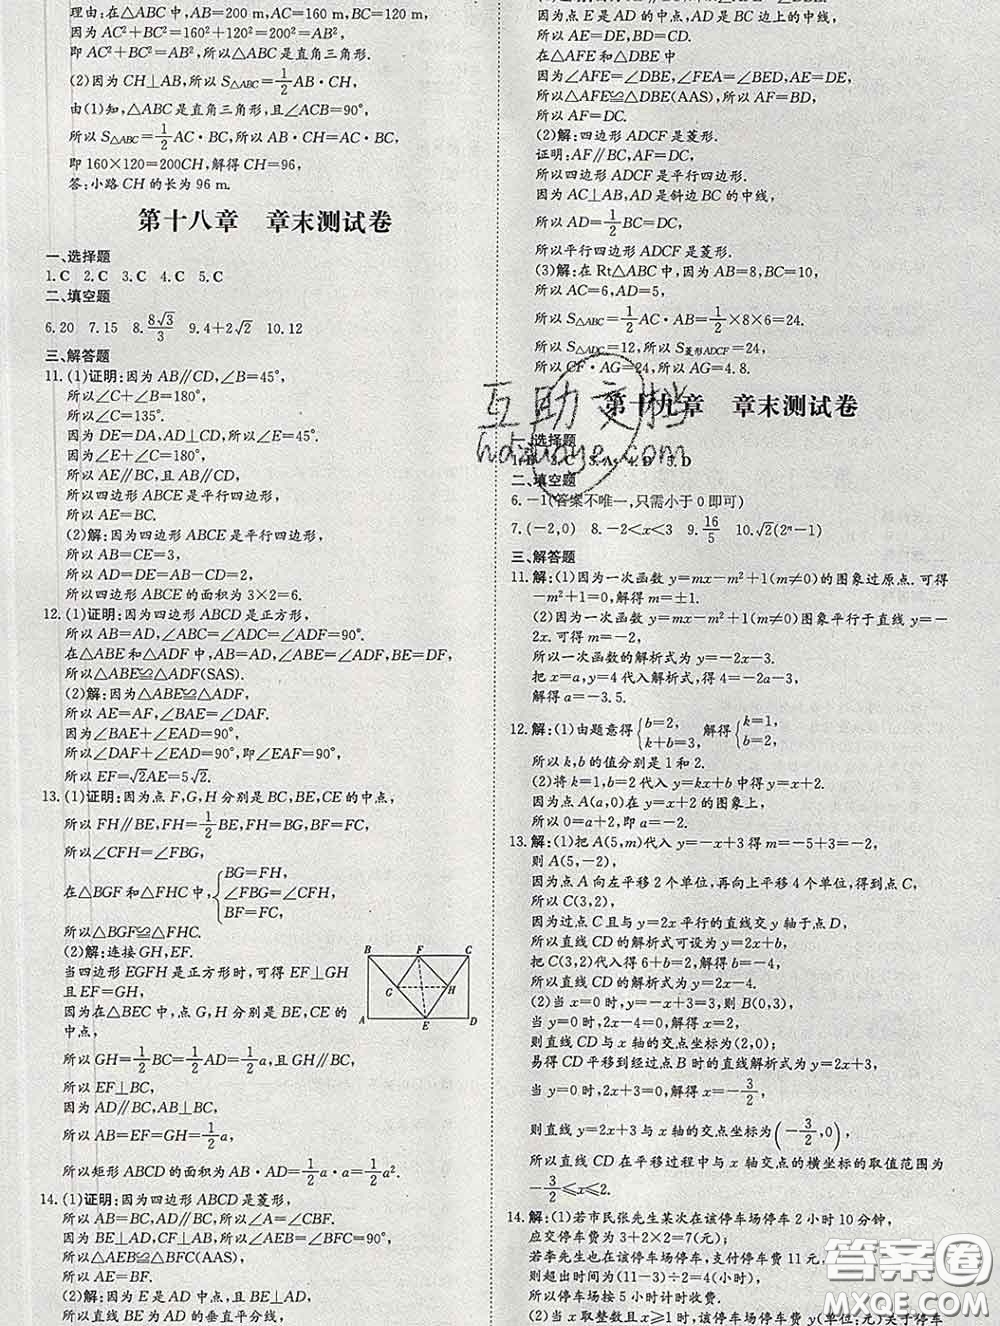 理由:在△ABC中,AB=200 m,AC=160 m,BC=120 m,
因为 AC²+BC²=160²+120²=200²=AB²,
即 AC²+BC²=AB²,所以△ABC是直角三角形.
(2)因为 CH⊥AB,所以 S△ABC=1/2AB·CH,
由(1)知,△ABC是直角三角形,且∠ACB=90°,
所以 S△ABC=1/2AC·BC,所以 AB·CH=AC·BC,
即 160×120=200CH,解得 CH=96,
答:小路 CH 的长为 96 m.
第十八章 章末测试卷
一、选择题
1.C 2.C 3.C 4.C 5.C
二、填空题
6.20 7.15 8.8√3/3 9.4+2√2 10.12
三、解答题
11.(1)证明:因为 AB∥CD,∠B=45°,
所以∠C+∠B=180°,
所以∠C=135°.
因为 DE=DA,AD⊥CD,所以∠E=45°.
因为∠E+∠C=180°,
所以 AE∥BC,且 AB∥CD,
所以四边形 ABCE 是平行四边形,
所以 AE=BC.
(2)解:因为四边形 ABCE 是平行四边形,
所以 AB=CE=3,
所以 AD=DE=AB-CD=2,
所以四边形 ABCE 的面积为 3×2=6.
12.(1)证明:因为四边形 ABCD 是正方形,
所以 AB=AD,∠ABC=∠ADC=∠ADF=90°.
在△ABE 和△ADF 中,AB=AD,∠ABE=∠ADF,BE=DF,
所以△ABE≌△ADF(SAS).
(2)解:因为△ABE≌△ADF,
所以 AE=AF,∠BAE=∠DAF.
因为∠BAE+∠EAD=90°,
所以∠DAF+∠EAD=90°,即∠EAF=90°.
所以 EF=√2AE=5√2.
13.(1)证明:因为点 F,G,H 分别是 BC,BE,CE 的中点,
所以 FH∥BE,FH=1/2BE,FH=BG,BF=FC,
所以∠CFH=∠FBG,
在△BGF 和△FHC 中,{BG=FH,
∠FBG=∠CFH,
BF=FC,
所以△BGF≌△FHC.
(2)解:连接 GH,EF.
当四边形 EGFH 是正方形时,可得 EF⊥GH
且 EF=GH,
因为在△BEC 中,点 G,H 分别为 BE,CE 的
中点,
B F C
G H
A E D
所以 GH=1/2BC=1/2AD=1/2a,且 GH∥BC,
所以 EF⊥BC.
因为 AD∥BC,AB⊥BC,
所以 AB=EF=GH=1/2a,
所以矩形 ABCD 的面积为 AB·AD=1/2a·a=1/2a².
14.(1)证明:因为四边形 ABCD 是菱形,
所以 AB=BC,AD∥BC,所以∠A=∠CBF.
因为 BE⊥AD,CF⊥AB,所以∠AEB=∠BFC=90°,
所以△AEB≌△BFC(AAS),
所以 AE=BF.
(2)解:因为 E 是 AD 的中点,且 BE⊥AD,
所以直线 BE 为 AD 的垂直平分线,
因为点 E 是 AD 的中点,AD 是 BC 边上的中线,
所以 AE=DE,BD=CD.
在△AFE 和△DBE 中
因为∠AFE=∠DBE,∠FEA=∠BED,AE=DE,
所以△AFE≌△DBE(AAS),所以 AF=BD,
所以 AF=DC.
(2)解:四边形 ADCF 是菱形.
证明:AF∥BC,AF=DC,
所以四边形 ADCF 是平行四边形.
因为 AC⊥AB,AD 是斜边 BC 的中线,
所以 AD=1/2BC=DC,
所以平行四边形 ADCF 是菱形.
(3)解:在 Rt△ABC 中,因为 AB=8,BC=10,
所以 AC=6,AD=5,
所以 S△ABC=1/2AC·AB=1/2×8×6=24.
所以 S△ADC=12,所以 S菱形ADCF=24,
所以 CF·AG=24,所以 AG=4.8.
第十九章 章末测试卷
一、选择题
5.D
二、填空题
6.-1(答案不唯一,只需小于 0 即可)
7.(-2,0) 8.-2<x<3 9.16/5 10.√2(2ⁿ-1)
三、解答题
11.解:(1)因为一次函数 y=mx-m²+1(m≠0)的图象过原点.可得
-m²+1=0,解得 m=±1.
(2)因为一次函数 y=mx-m²+1(m≠0)图象平行于直线 y=-
2x.可得 m=-2,
所以一次函数的解析式为 y=-2x-3.
把 x=a,y=4 代入解析式,得 4=-2a-3,
解得 a=-3.5.
12.解:(1)由题意得{b=2, k+b=3, 解得{k=1, b=2,
所以 k,b 的值分别是 1 和 2.
(2)将 k=1,b=2 代入 y=kx+b 中得 y=x+2.
因为点 A(a,0)在 y=x+2 的图象上,
所以 0=a+2,即 a=-2.
13.解:(1)把 A(5,m)代入 y=-x+3 得 m=-5+3=-2,
则 A(5,-2),
因为点 A 向左平移 2 个单位,再向上平移 4 个单位,得到点 C,
所以 C(3,2),
因为过点 C 且与 y=2x 平行的直线交 y 轴于点 D,
所以直线 CD 的解析式可设为 y=2x+b,
把 C(3,2)代入得 6+b=2,解得 b=-4,
所以直线 CD 的解析式为 y=2x-4.
(2)当 x=0 时,y=-x+3=3,则 B(0,3),
当 y=0 时,2x-4=0,解得 x=2,
则直线 CD 与 x 轴的交点坐标为(2,0);
易得 CD 平移到经过点 B 时的直线解析式为 y=2x+3,
当 y=0 时,2x+3=0,解得 x=-3/2,
则直线 y=2x+3 与 x 轴的交点坐标为(-3/2,0),
所以直线 CD 在平移过程中与 x 轴交点的横坐标的取值范围为
-3/2≤x≤2.
14.解:(1)若市民张先生某次在该停车场停车 2 小时 10 分钟,
应交停车费为 3+2×2=7(元);
若李先生也在该停车场停车,支付停车费 11 元,
则超出时间为(11-3)÷2=4(小时),
所以停车场按 5 小时计时收费.
(2)当 x 取整数且 x≥1 时,该停车场停车费 y(单位:元)关于停车
互助文档
答案圈
MXQE.COM